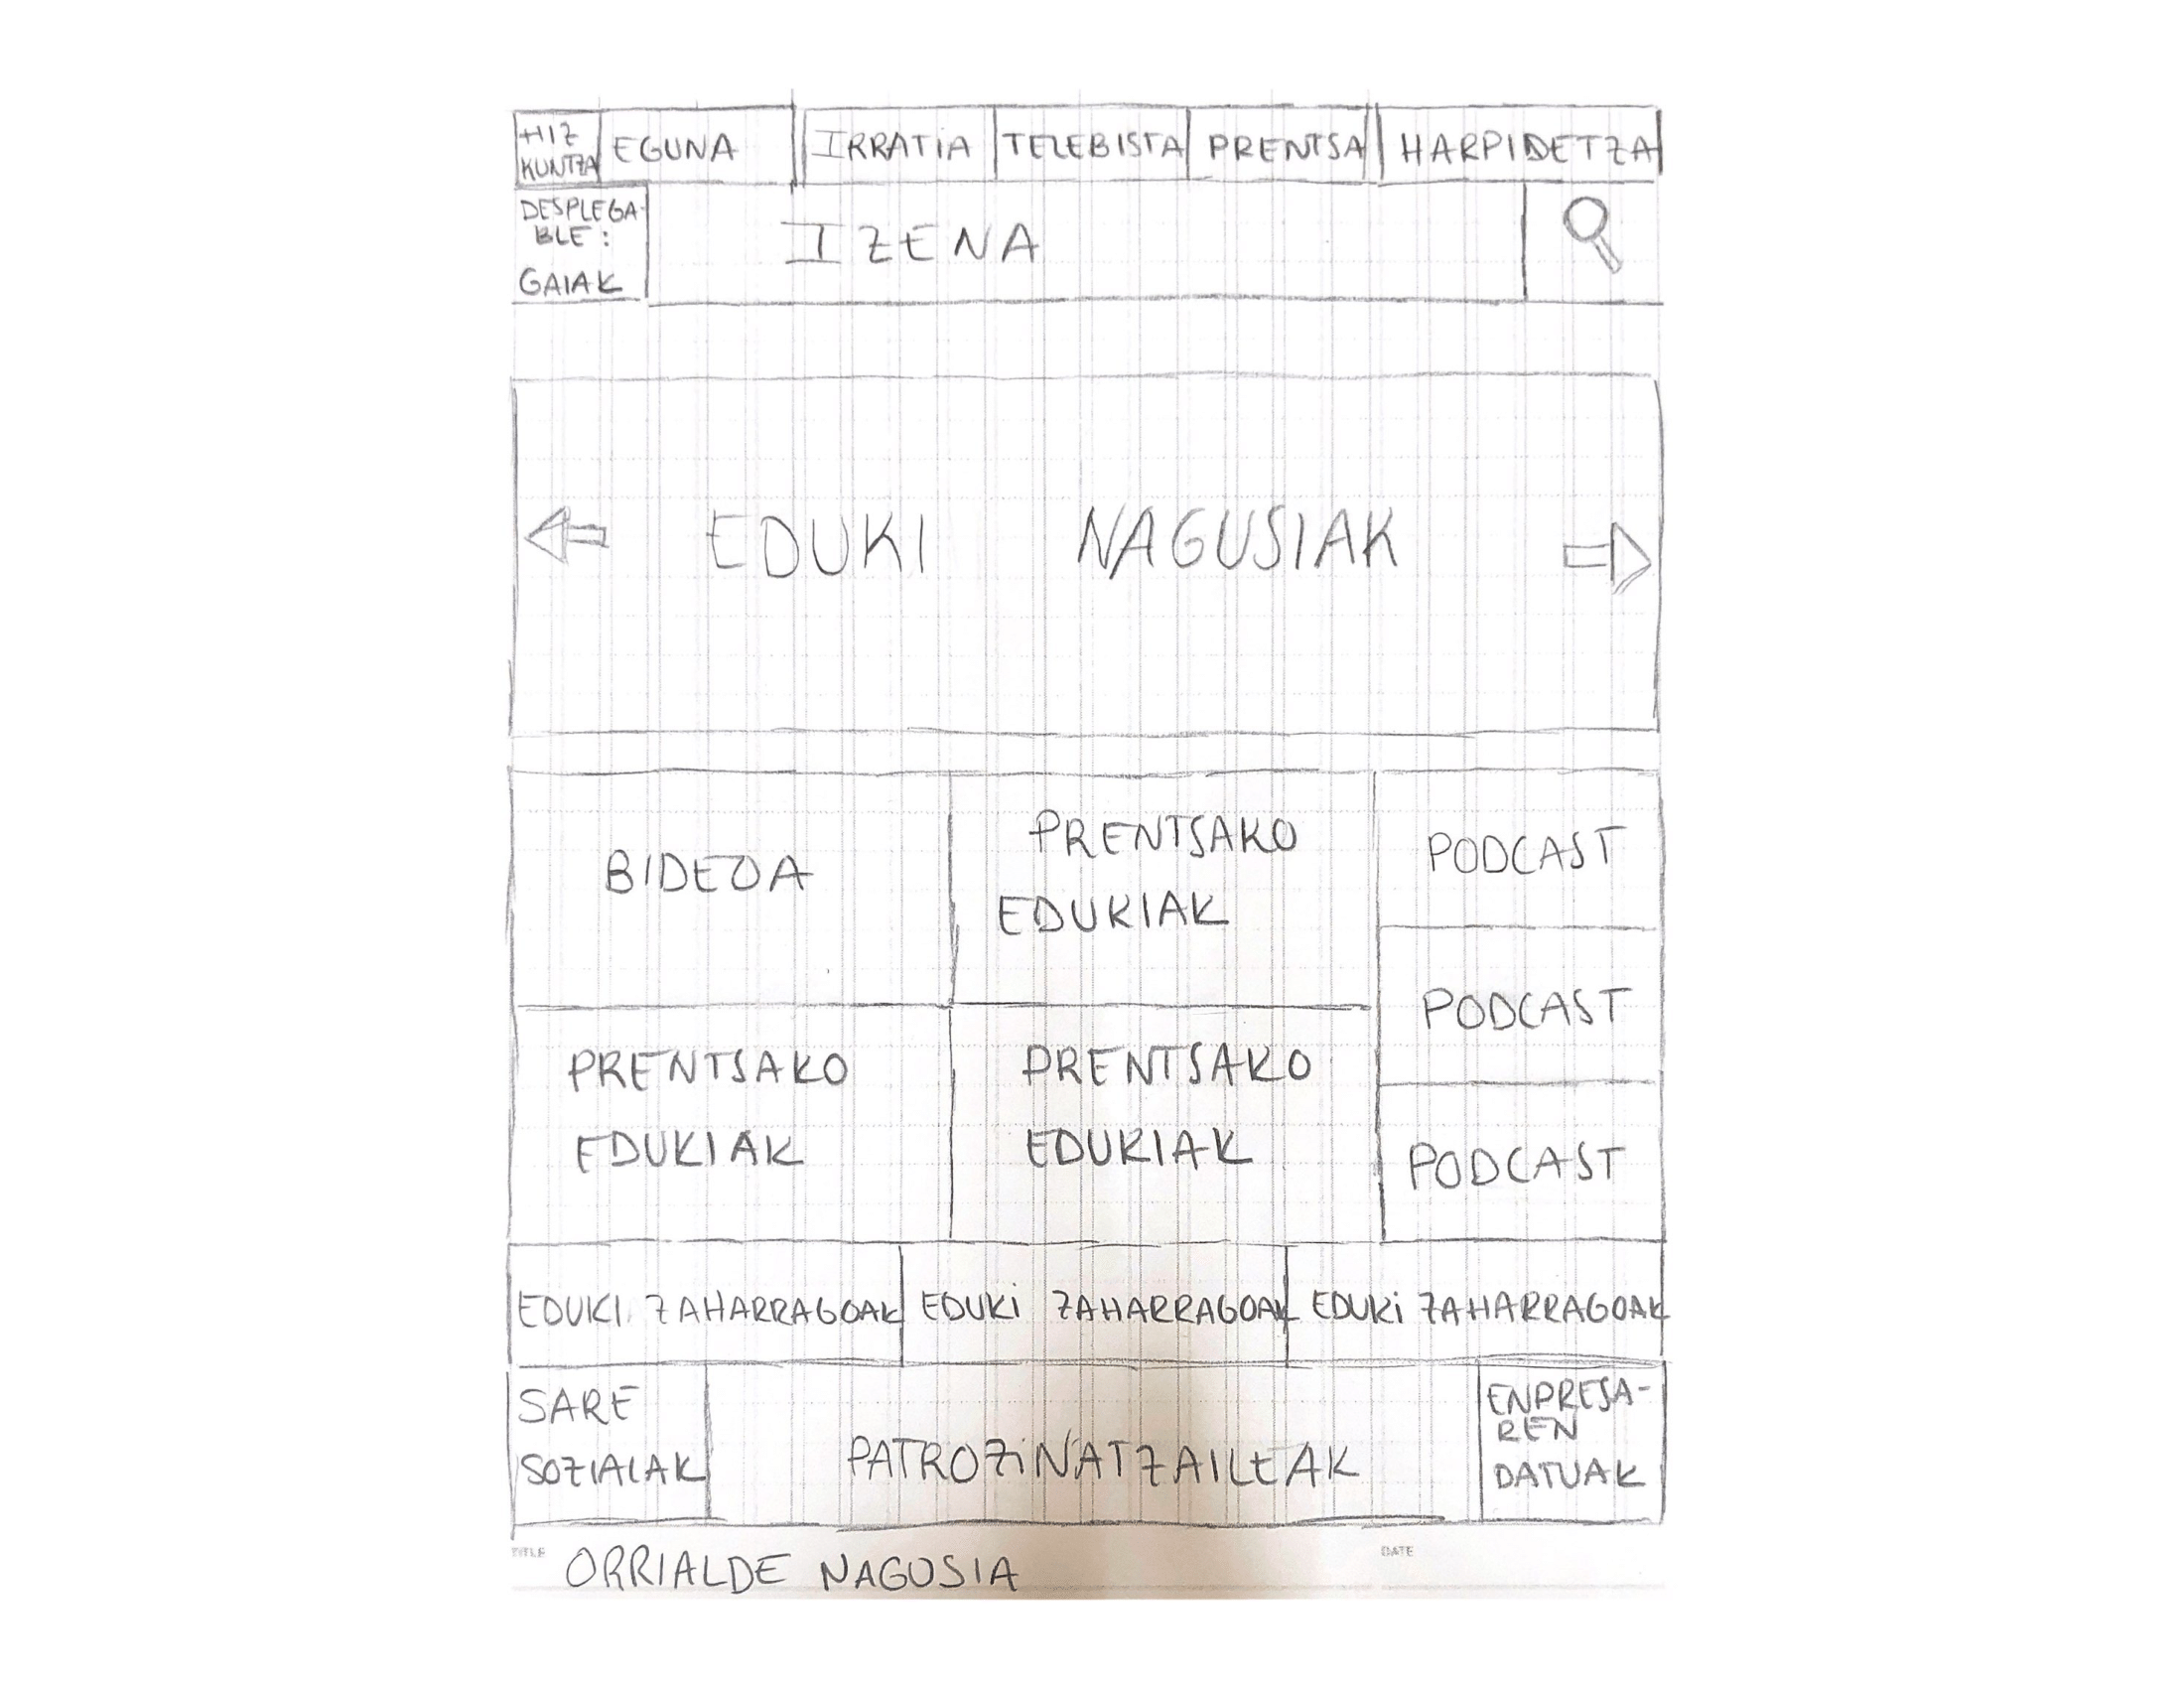 HIZ
KUNTZA
EGUNA
IRRATIA
TELEBISTA
PRENTSA
HARPIDETZA
DESPLEGA-
BLE:
GAIAK
IZENA
EDUKI NAGUSIAK
BIDEOA
PRENTSAKO
EDUKIAK
PODCAST
PODCAST
PRENTSAKO
EDUKIAK
PRENTSAKO
EDUKIAK
PODCAST
EDUKI ZAHARRAGOAK
EDUKI ZAHARRAGOAK
EDUKI ZAHARRAGOAK
SARE
SOZIALAK
PATROZINATZAILEAK
ENPRESA-
REN
DATUAK
TITLE
ORRIALDE NAGUSIA
DATE